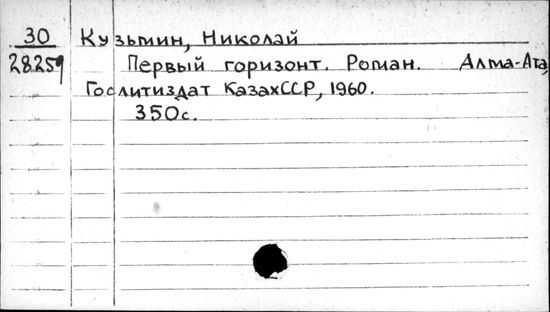 30 Кузьмин, Николай
28259 Первый горизонт. Роман. Алма-Ата,
Гослитиздат КазахССР, 1960.
350с.